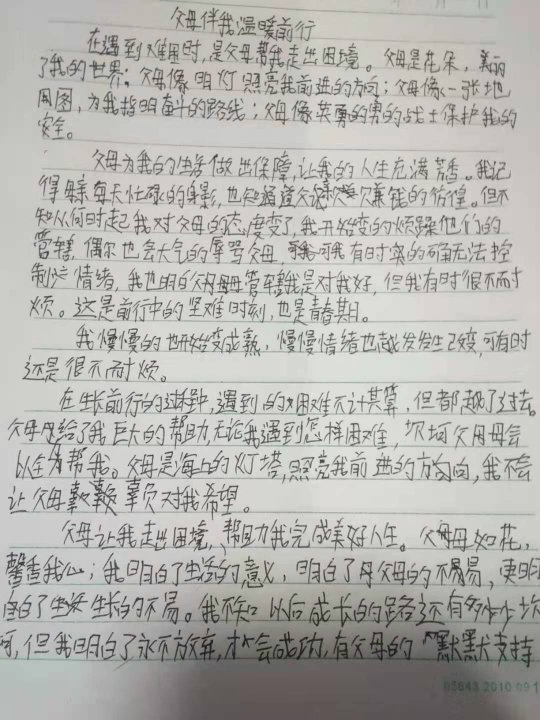 父母伴我温暖前行
在遇到难困时,是父母帮我走出困境。父母是花朵,美丽
了我的世界;父母像明灯照亮我前进的方向;父母像一张地
图,为我指明奋斗的路线;父母像英勇的勇的战士保护我的
安全。
父母为我的生活做出保障,让我的人生充满芳香。我记
得母亲每天忙碌的身影,也知道父一次次赚钱的彷徨。但不
知从何时起我对父母的态度变了,我开始变的烦躁他们的
管辖,偶尔也会大气的辱骂父母,有时实的确无法控
制这情绪,我也明白父母管辖我是对我好,但我有时很不耐
烦。这是前行中的坚难时刻,也是青春期。
我慢慢的也开始变成熟,慢慢情绪也越发发生改变,可有时
还是很不耐烦。
在生长前行的过程中,遇到的困难不计其算,但都越了过去。
父母给了我巨大的帮助,无论我遇到怎样困难,坎坷父母会
以全为帮我。父母是海上的灯塔,照亮我前进的方向,我不会
让父母辜负对我希望。
父母让我走出困境,帮助我完成美好人生。父母如花,
馨香我心;我明白了生活的意义,明白了父母的不易,更明
白了生长的不易。我不知以后成长的路还有多少坎
坷,但我明白了永不放弃,才会成功,有父母的默默支持
05643 2010 09 1